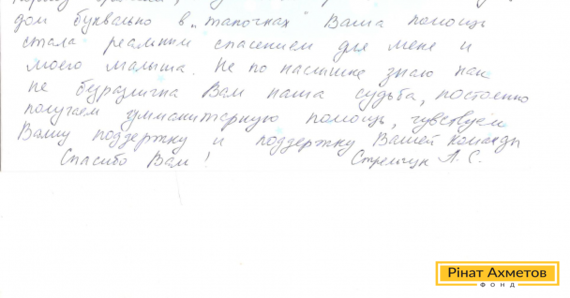 дом буквально в „тапочках" Ваша помощь
стала реальным спасением для меня и
моего малыша. Не по наслышке знаю как
не безразлична Вам наша судьба, постоянно
получаем гуманитарную помощь, чувствуем
Вашу поддержку и поддержку Вашей команды
Спасибо Вам! Стрельчук А. С.
Рінат Ахметов
ФОНД